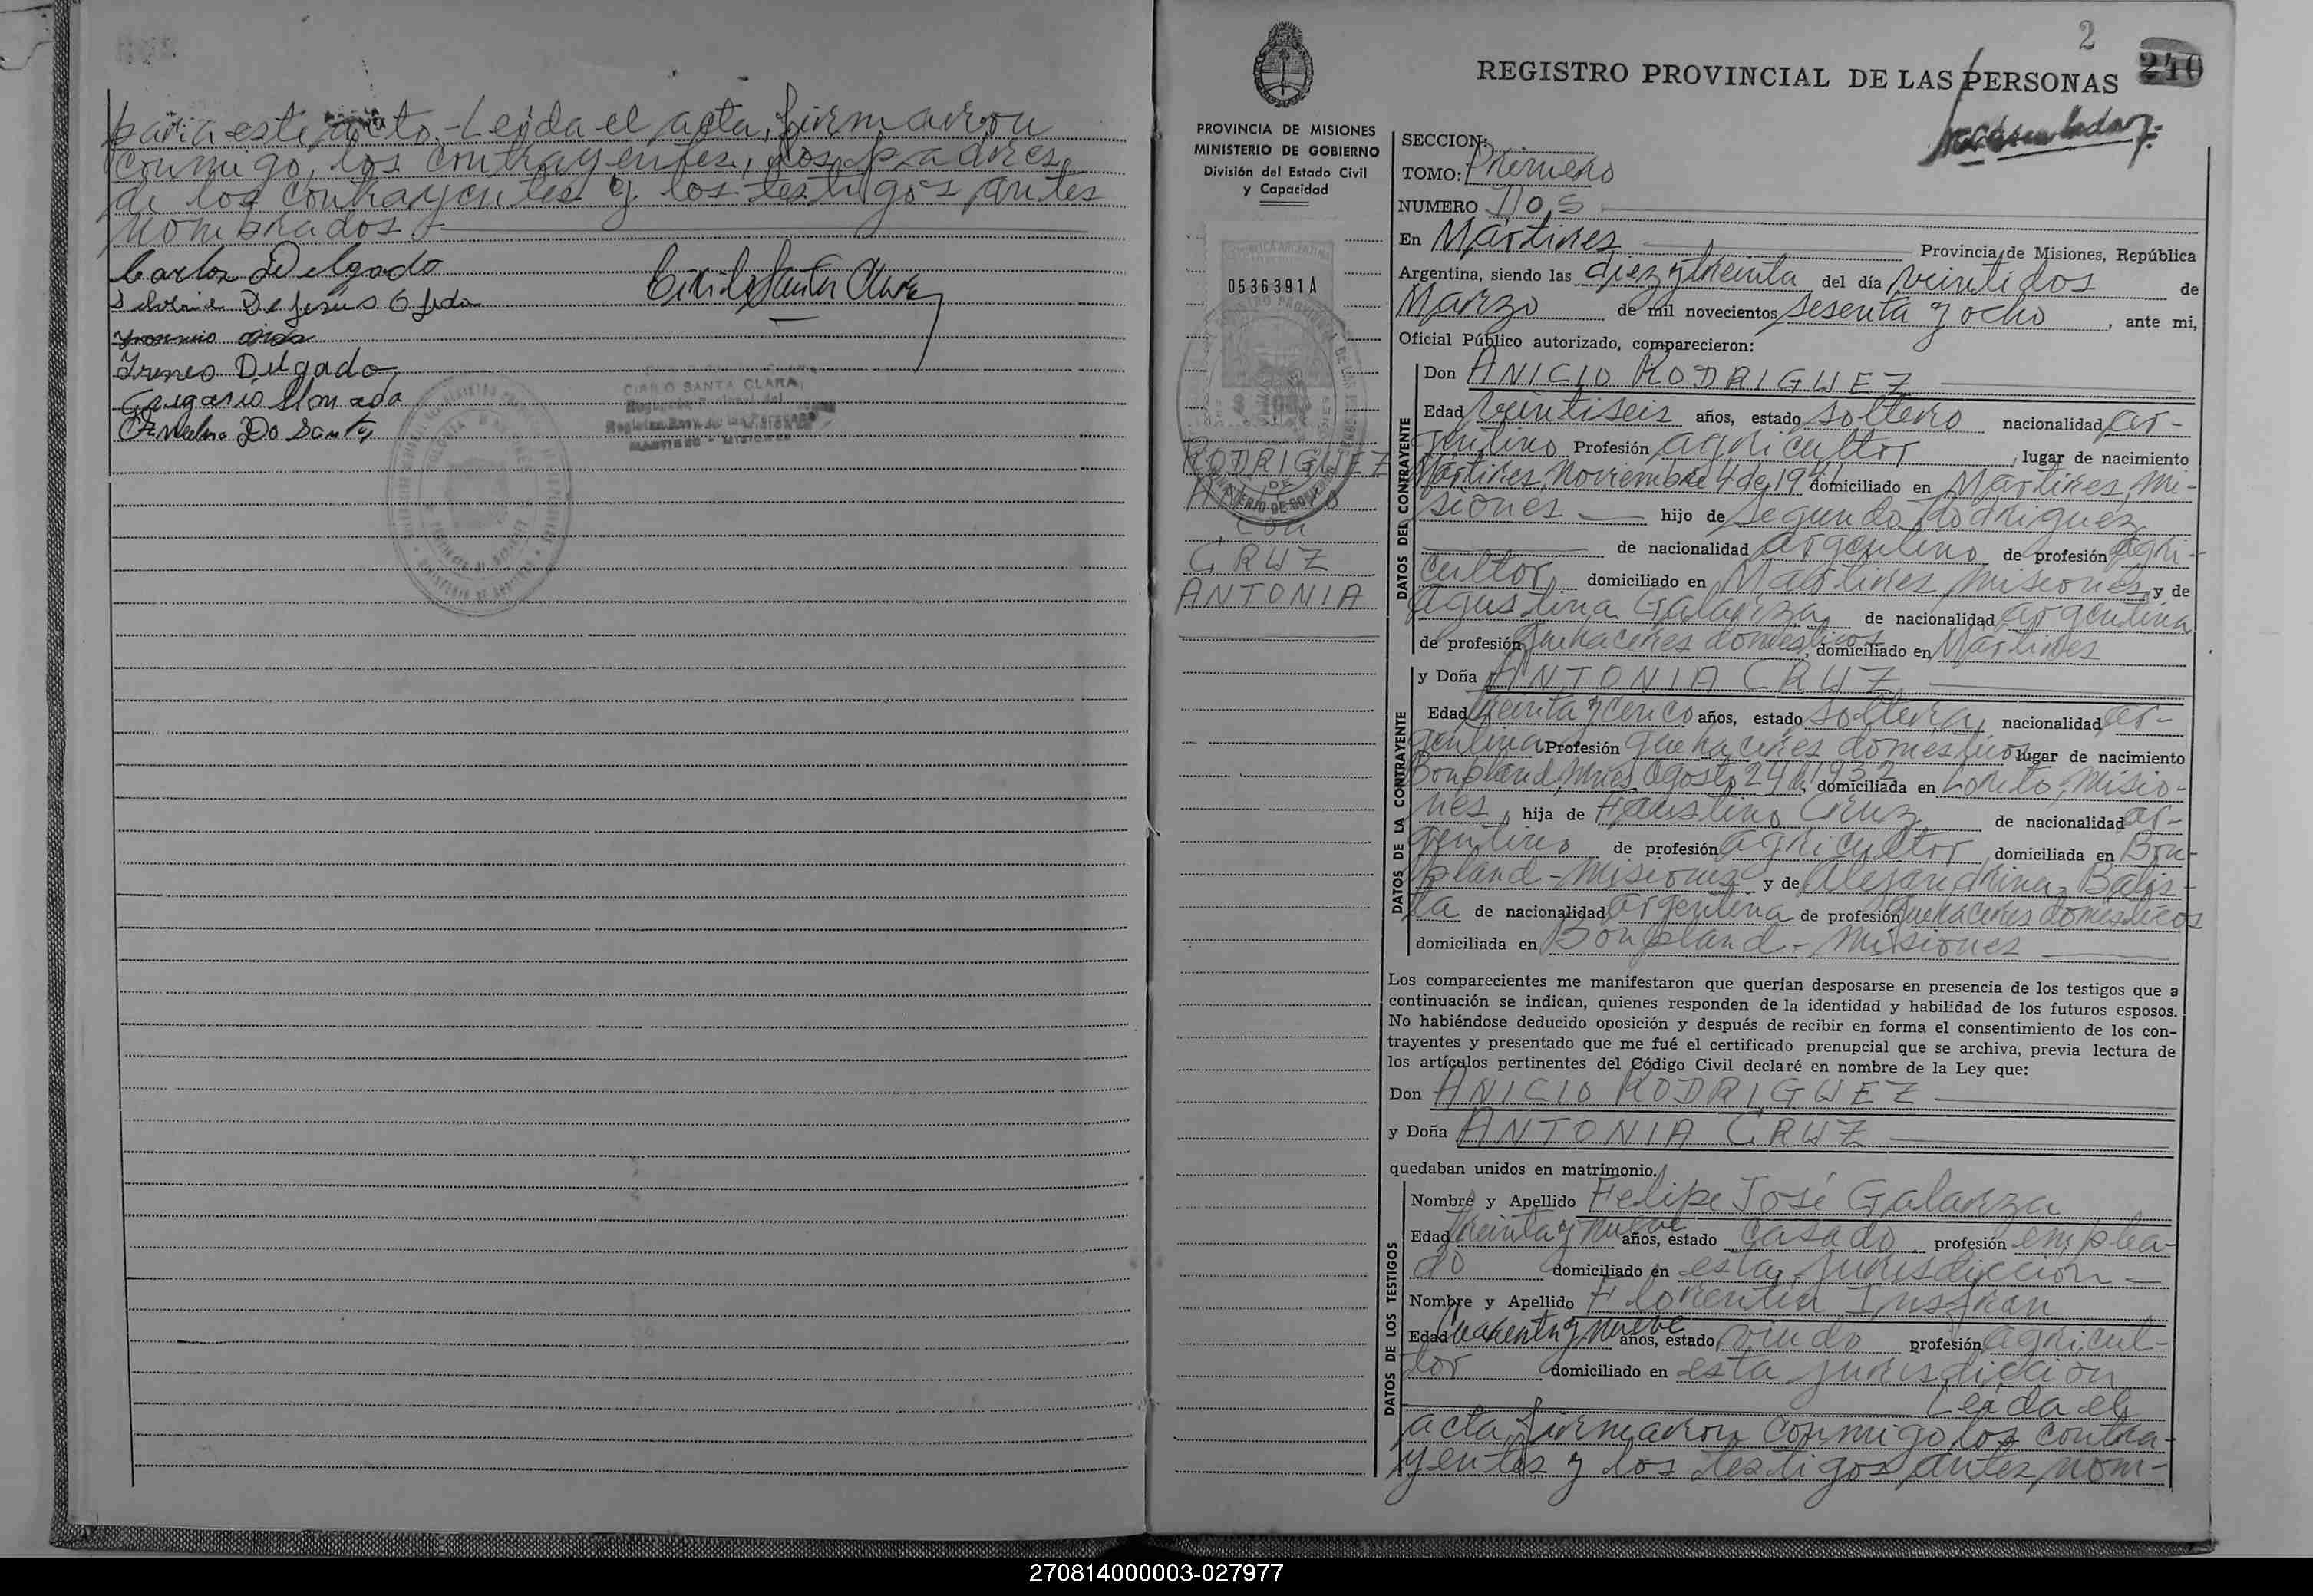 para este acto.-Leida el acta, firmaron
conmigo, los contrayentes, los padres
de los contrayentes y los testigos antes
nombrados.-
Carlos Delgado
De Jesus Ojeda
Ireneo Delgado
Gregorio Almada
Do Santos
CIRILO SANTA CLARA
MARTIRES - MISIONES
2
240
REGISTRO PROVINCIAL DE LAS PERSONAS
PROVINCIA DE MISIONES
MINISTERIO DE GOBIERNO
División del Estado Civil
y Capacidad
0536391A
RODRIGUEZ
ANICIO
con
CRUZ
ANTONIA
SECCION:
TOMO: Primero
NUMERO Dos
En Mártires Provincia de Misiones, República
Argentina, siendo las diez y treinta del día veintidos de
Marzo de mil novecientos sesenta y ocho, ante mi,
Oficial Público autorizado, comparecieron:
DATOS DEL CONTRAYENTE
Don ANICIO RODRIGUEZ
Edad veintiseis años, estado soltero nacionalidad ar-
gentino Profesión agricultor, lugar de nacimiento
Mártires, Noviembre 4 de 1941 domiciliado en Martires, Mi-
siones hijo de Segundo Rodriguez
de nacionalidad argentino de profesión agri-
cultor, domiciliado en Martires, Misiones, y de
Agustina Galarza, de nacionalidad argentina
de profesión quehaceres domesticos, domiciliado en Mártires
DATOS DE LA CONTRAYENTE
y Doña ANTONIA CRUZ
Edad treinta y cinco años, estado soltera, nacionalidad ar-
gentina Profesión quehaceres domesticos lugar de nacimiento
Bonpland, Mnes, Agosto 24 de 1932 domiciliada en Loreto, Misio-
nes, hija de Faustino Cruz de nacionalidad ar-
gentino de profesión agricultor, domiciliada en Bon-
pland - Misiones y de Alejandrina Batis-
ta de nacionalidad argentina de profesión quehaceres domesticos
domiciliada en Bonpland - Misiones
Los comparecientes me manifestaron que querían desposarse en presencia de los testigos que a
continuación se indican, quienes responden de la identidad y habilidad de los futuros esposos.
No habiéndose deducido oposición y después de recibir en forma el consentimiento de los con-
trayentes y presentado que me fué el certificado prenupcial que se archiva, previa lectura de
los artículos pertinentes del Código Civil declaré en nombre de la Ley que:
Don ANICIO RODRIGUEZ
y Doña ANTONIA CRUZ
quedaban unidos en matrimonio.
DATOS DE LOS TESTIGOS
Nombre y Apellido Felipe José Galarza
Edad treinta y nueve años, estado casado profesión emplea-
do domiciliado en esta jurisdiccion
Nombre y Apellido Florentin Insfran
Edad Cuarenta y nueve años, estado viudo profesión agricul-
tor domiciliado en esta jurisdicion
Leida el
acta, firmaron conmigo los contra-
yentes y los testigos antes nom-
270814000003-027977